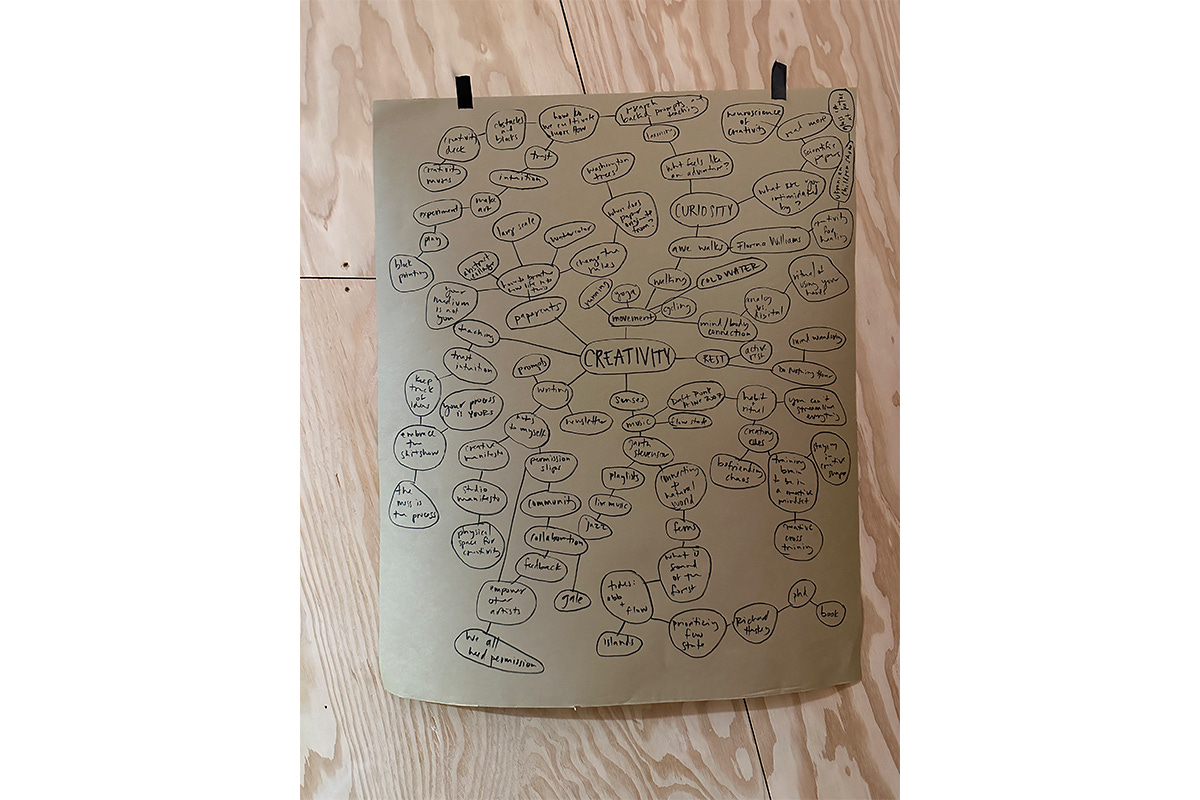 obstacles
and
blocks
how do
we cultivate
more flow
research
backed prompts
teaching
neuroscience
of
creativity
read more
creativity
deck
creativity
muses
trust
intuition
make
art
experiment
play
block
printing
washington
trees
what feels like
an adventure?
scientific
papers
what are you
intimidated
by?
CURIOSITY
where does
paper
originate
from?
large scale
watercolor
change the
rules
abstract
collage
how to
medium
is not
yours
papercuts
awe walks
Florence Williams
creativity
for
healing
walking
COLD WATER
running
yoga
cycling
movement
mind/body
connection
analog
vs.
digital
ritual of
using your
hands
CREATIVITY
REST
active
rest
mind wandering
Do nothing
teaching
trust
intuition
keep
track
of
ideas
your process
is YOURS
embrace
the
shitshow
the
mess is
the process
prompts
writing
newsletter
notes
to
myself
creative
manifesto
studio
manifesto
physical
space for
creativity
permission
slips
community
collaboration
feedback
gale
empower
other
artists
We all
need permission
senses
music
Daft Punk
Alive 2007
flow state
garth
stevenson
playlists
live music
jazz
connecting
+
natural
world
ferns
what is
sound
of the
forest
tides:
ebb
+
flow
islands
prioritizing
flow
state
Richard
phd
book
habit
+
ritual
you can't
streamline
everything
creating
befriending
chaos
training
brain
to be in
a creative
mindset
staying
in
creative
shape
creative
cross
training